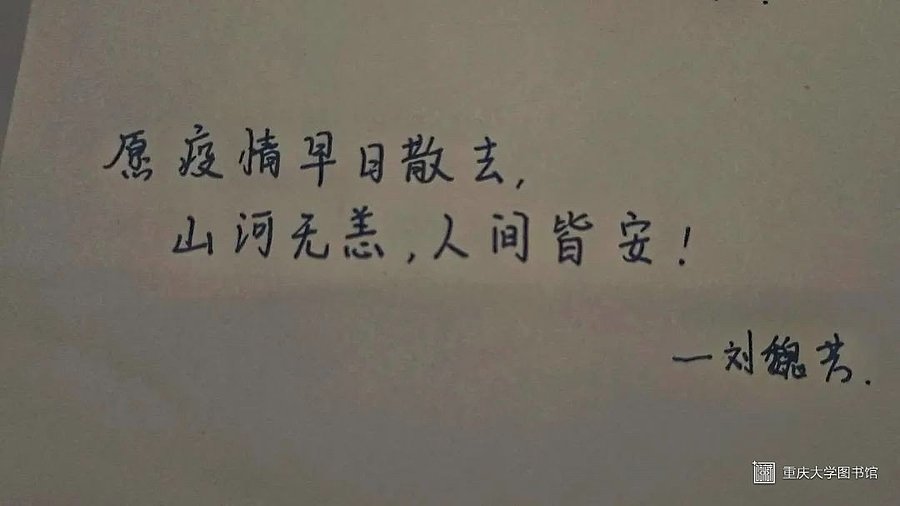 愿疫情早日散去,
山河无恙,人间皆安!
—刘魏芳.
重庆大学图书馆